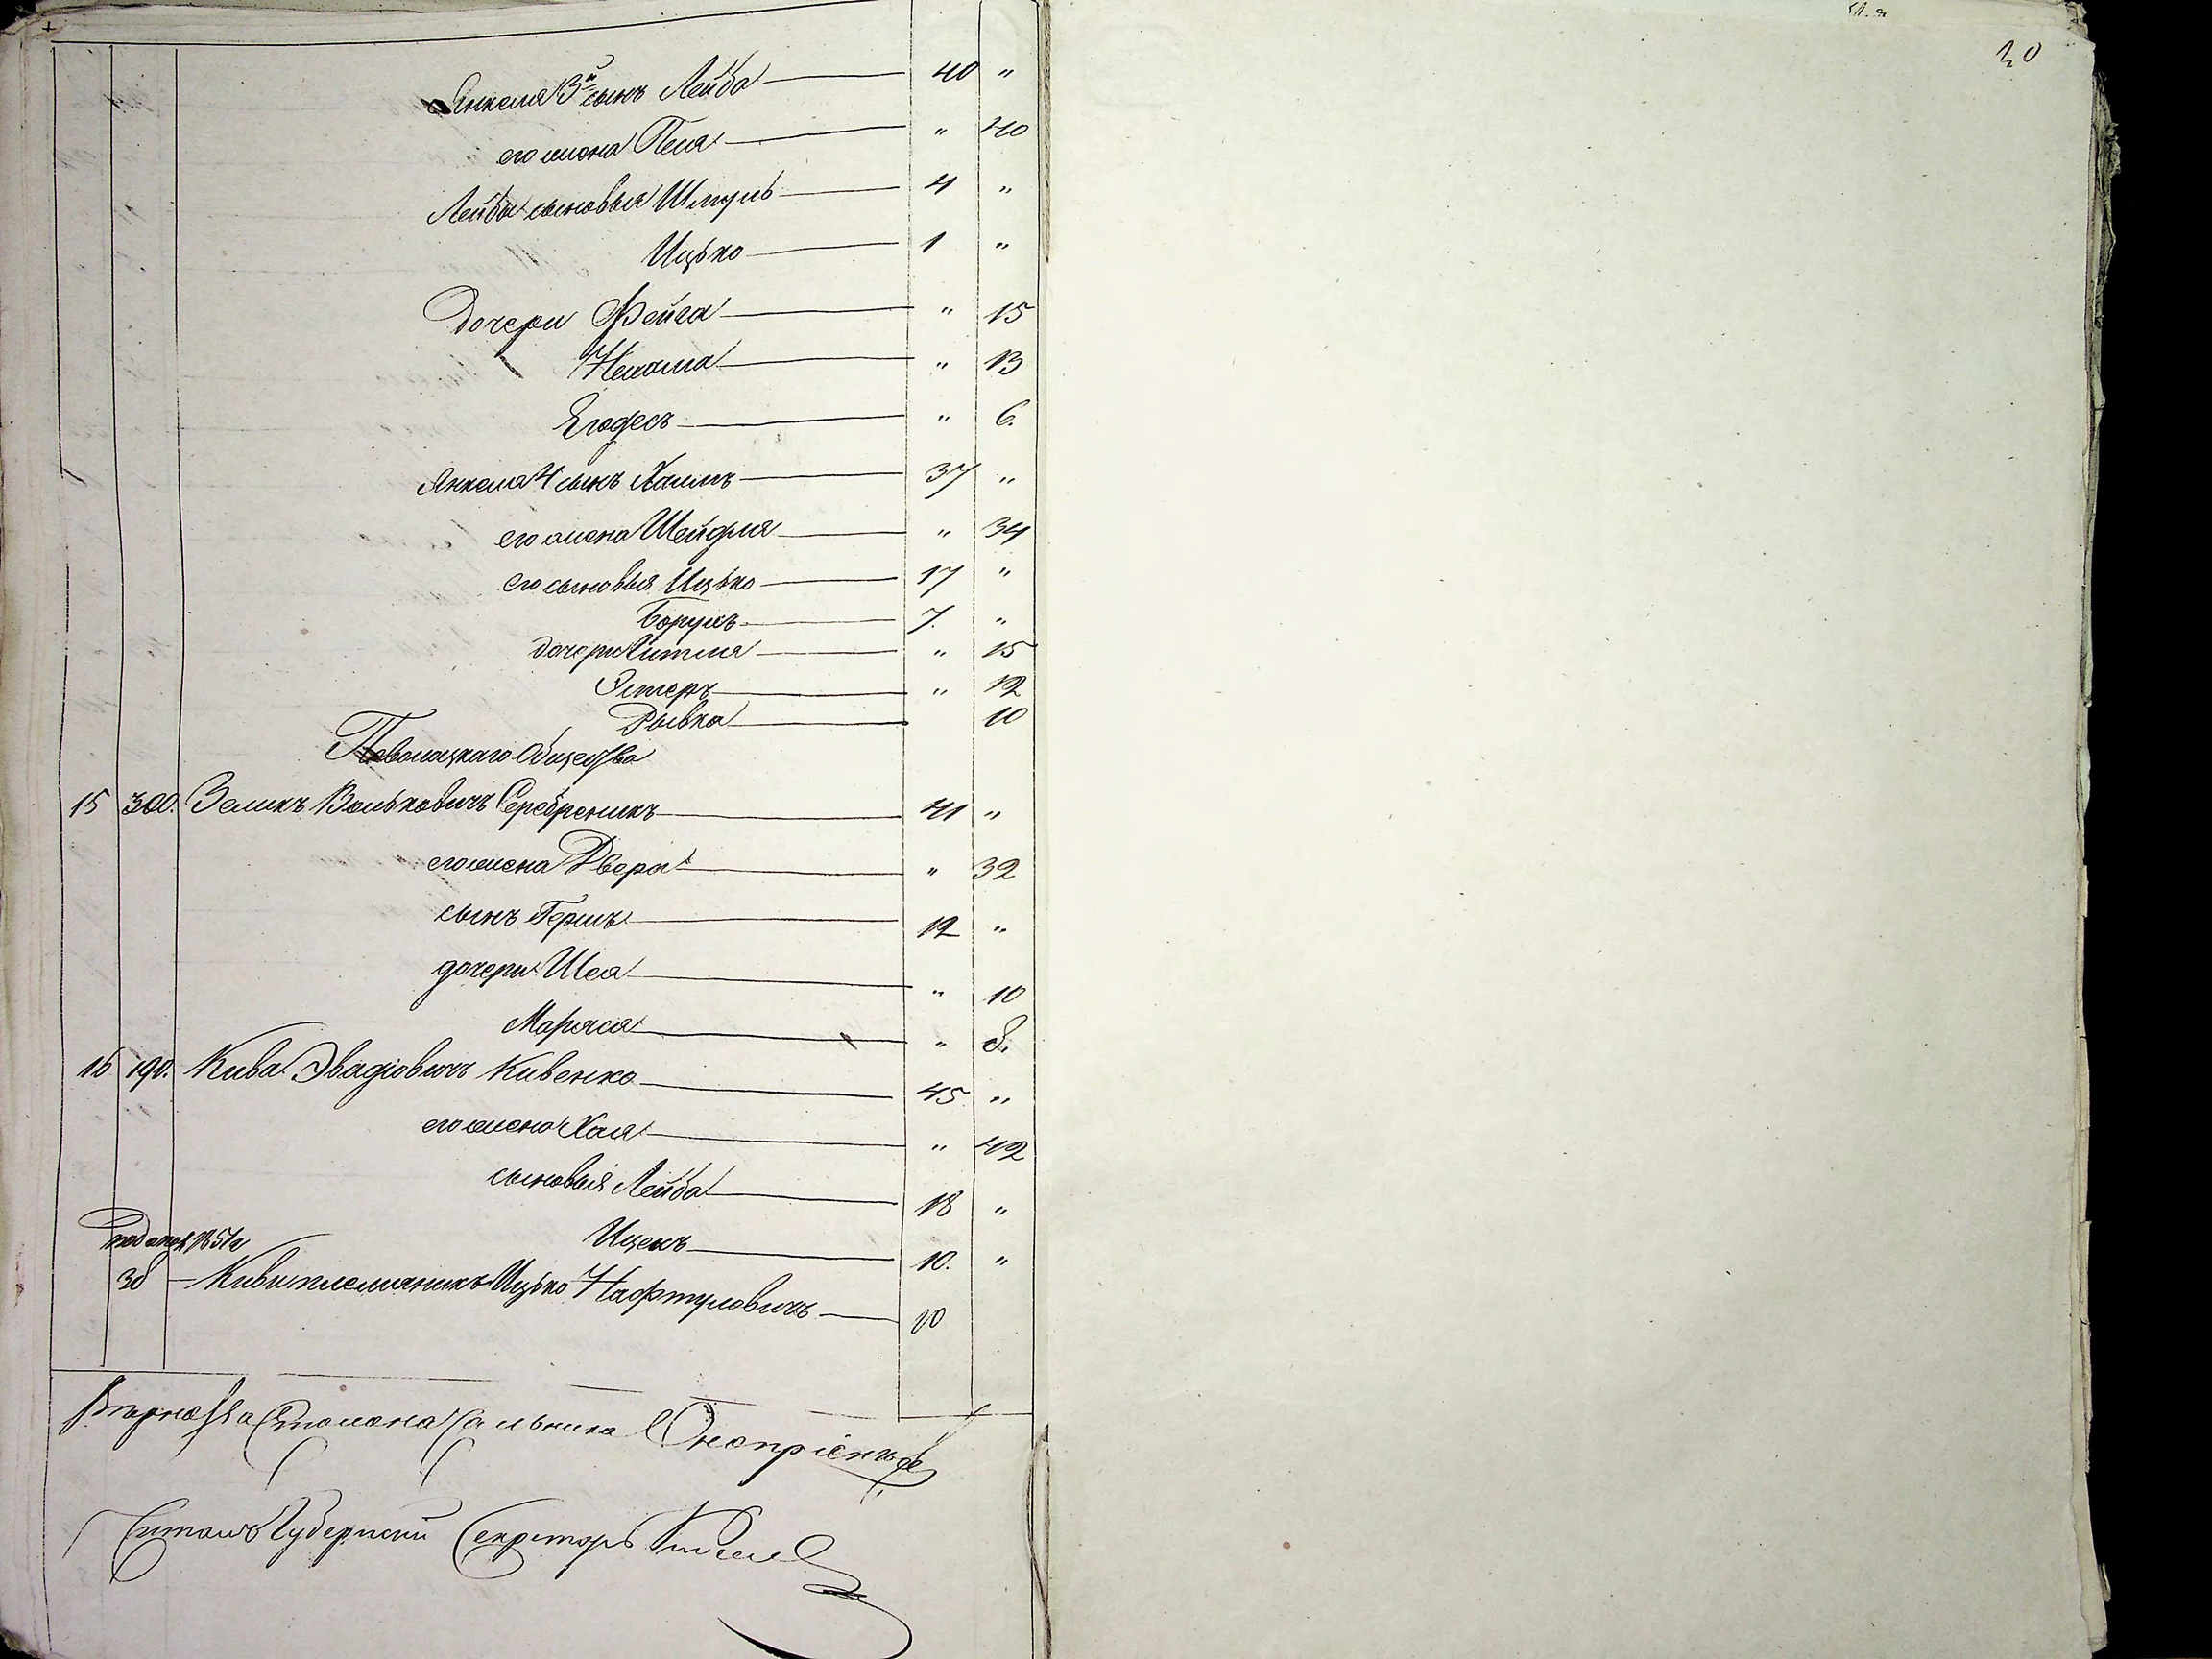 20
Янкеля 3й сынъ Лейба — 40 "
его жена Песя — " 40
Лейбы сыновья Шмуль — 4 "
Ицько — 1 "
дочери Фейга — " 15
Нехама — " 13
Егодесъ — " 6.
Янкеля 4 сынъ Хаимъ — 37 "
его жена Шейдля — " 34
его сыновья Ицько — 17 "
Борухъ — 7. "
дочери — " 15
Эстеръ — " 12
Рывка — 10
Паволоцкаго Общества
15 300. Зеликъ Вольковичъ Серебреникъ — 41 "
его жена Двера — " 32
сынъ Гершъ — 12 "
дочери Шея — " 10
Маряся — " 8.
16 190. Кива Эвадіовичъ Кивенко — 45 "
его жена Хая — " 42
сыновья Лейба — 18 "
Ицекъ — 10. "
1851г
30 — Кивы племянникъ Ицько Нафтуловичъ — 20
Секретарь
Читалъ Губернскій Секретарь